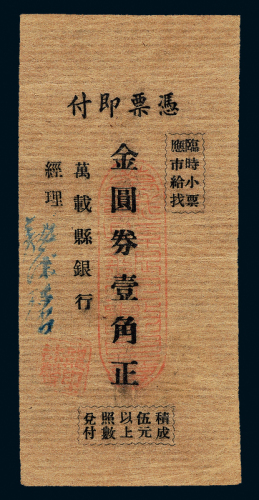 憑票即付
臨時小票
應市給找
金圓券壹角正
萬載縣銀行
經理
積成
伍元
以上
照數
兌付